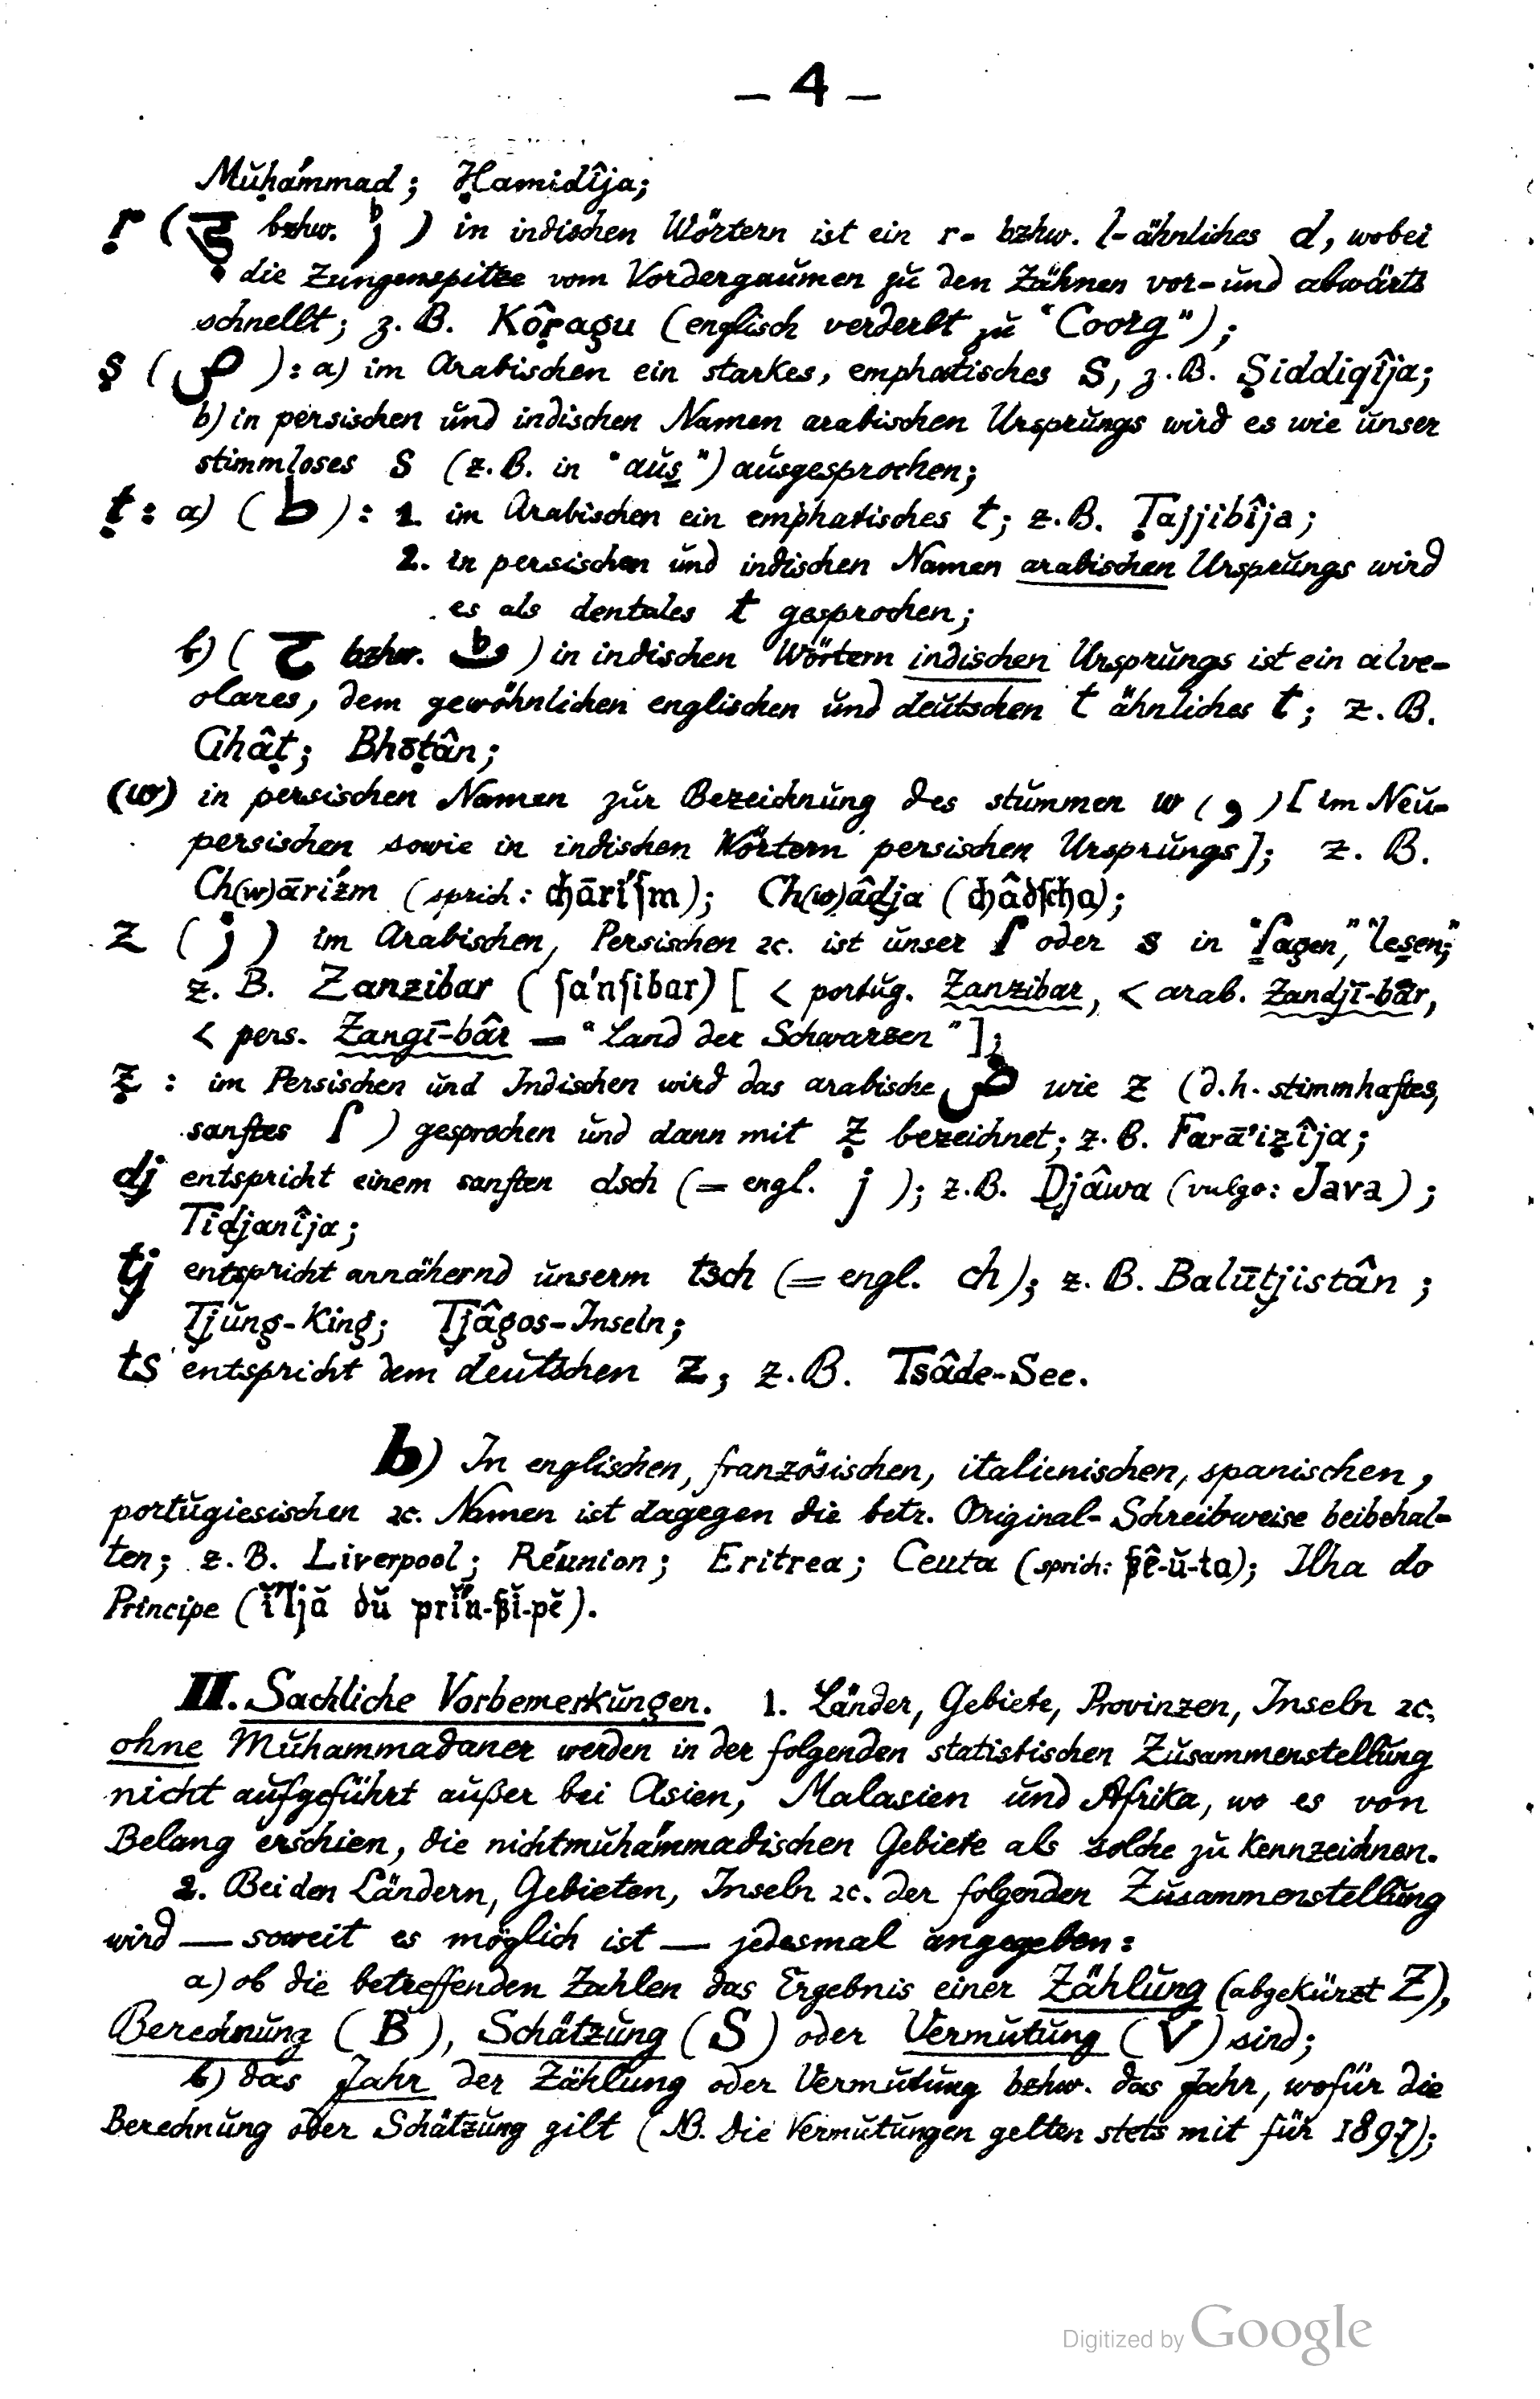 – 4 –
Muḥámmad; Ḥamidîja;
ṛ (ड़ bzhw. ڑ) in indischen Wörtern ist ein r- bzhw. l-ähnliches d, wobei
die Zungenspitze vom Vordergaumen zu den Zähnen vor- und abwärts
schnellt; z. B. Kôṛagu (englisch verderbt zu "Coorg");
ṣ (ص): a) im Arabischen ein starkes, emphatisches S, z. B. Ṣiddiqîja;
b) in persischen und indischen Namen arabischen Ursprungs wird es wie unser
stimmloses S (z. B. in "aus") ausgesprochen;
ṭ: a) (ط): 1. im Arabischen ein emphatisches t; z. B. Ṭajjibîja;
2. in persischen und indischen Namen arabischen Ursprungs wird
es als dentales t gesprochen;
b) (ट bzhw. ٹ) in indischen Wörtern indischen Ursprungs ist ein alve-
olares, dem gewöhnlichen englischen und deutschen t ähnliches t; z. B.
Ghâṭ; Bhōṭân;
(w) in persischen Namen zur Bezeichnung des stummen w (و) [im Neu-
persischen sowie in indischen Wörtern persischen Ursprungs]; z. B.
Ch(w)ārízm (sprich: chāríſm); Ch(w)âdja (châdſcha);
z (ز) im Arabischen, Persischen ꝛc. ist unser ſ oder s in "ſagen", "lesen";
z. B. Zanzibar (ſánſibar) [< portug. Zanzibar, < arab. Zandjī-bâr,
< pers. Zangī-bâr = "Land der Schwarzen"];
ẓ: im Persischen und Indischen wird das arabische ض wie z (d. h. stimmhaftes,
sanftes ſ) gesprochen und dann mit ẓ bezeichnet; z. B. Farā'iẓîja;
dj entspricht einem sanften dsch (= engl. j); z. B. Djâwa (vulgo: Java);
Tidjanîja;
tj entspricht annähernd unserm tsch (= engl. ch); z. B. Balūtjistân;
Tjung-King; Tjâgos-Inseln;
ts entspricht dem deutschen z; z. B. Tsâde-See.
b) In englischen, französischen, italienischen, spanischen,
portugiesischen ꝛc. Namen ist dagegen die betr. Original-Schreibweise beibehal-
ten; z. B. Liverpool; Réunion; Eritrea; Ceuta (sprich: ßê-ŭ-ta); Ilha do
Principe (ĭ́ljă dŭ prĭ́n-ßĭ-pĕ).
II. Sachliche Vorbemerkungen. 1. Länder, Gebiete, Provinzen, Inseln ꝛc.
ohne Muhammadaner werden in der folgenden statistischen Zusammenstellung
nicht aufgeführt außer bei Asien, Malasien und Afrika, wo es von
Belang erschien, die nichtmuhámmadischen Gebiete als solche zu kennzeichnen.
2. Bei den Ländern, Gebieten, Inseln ꝛc. der folgenden Zusammenstellung
wird — soweit es möglich ist — jedesmal angegeben:
a) ob die betreffenden Zahlen das Ergebnis einer Zählung (abgekürzt Z),
Berechnung (B), Schätzung (S) oder Vermutung (V) sind;
b) das Jahr der Zählung oder Vermutung bzhw. das Jahr, wofür die
Berechnung oder Schätzung gilt (NB. Die Vermutungen gelten stets mit für 1897);
Digitized by Google